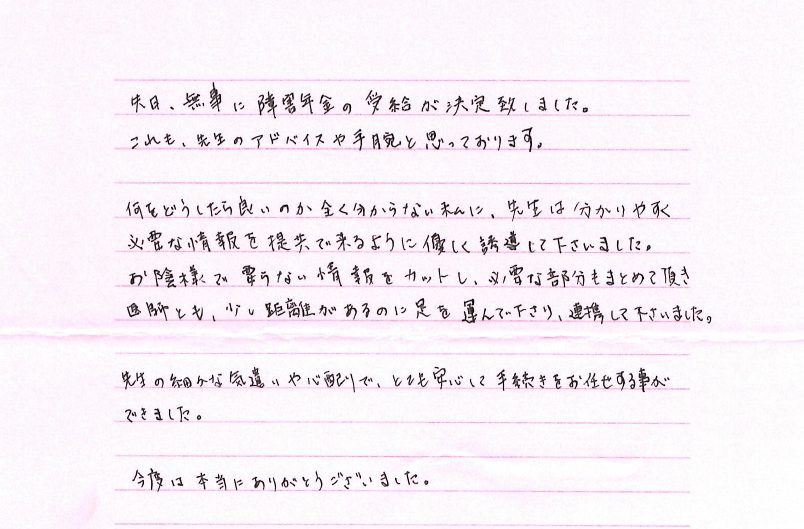 先日、無事に障害年金の受給が決定致しました。
これも、先生のアドバイスや手腕と思っております。
何をどうしたら良いのか全く分からない私に、先生は分かりやすく
必要な情報を提供出来るように優しく誘導して下さいました。
お陰様で要らない情報をカットし、必要な部分をまとめて頂き
医師とも、少し距離があるのに足を運んで下さり、連携して下さいました。
先生の細かな気遣いや心配りで、とても安心して手続きをお任せする事が
できました。
今度は本当にありがとうございました。